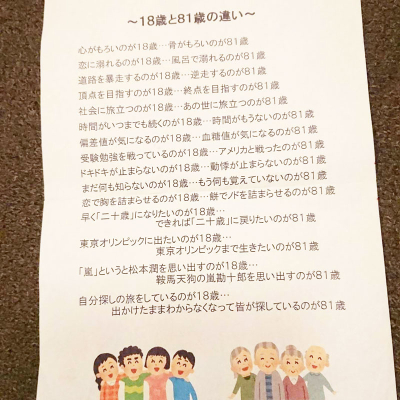 ～18歳と81歳の違い～
心がもろいのが18歳…骨がもろいのが81歳
恋に溺れるのが18歳…風呂で溺れるのが81歳
道路を暴走するのが18歳…逆走するのが81歳
頂点を目指すのが18歳…終点を目指すのが81歳
社会に旅立つのが18歳…あの世に旅立つのが81歳
時間がいつまでも続くのが18歳…時間がもうないのが81歳
偏差値が気になるのが18歳…血糖値が気になるのが81歳
受験勉強を戦っているのが18歳…アメリカと戦ったのが81歳
ドキドキが止まらないのが18歳…動悸が止まらないのが81歳
まだ何も知らないのが18歳…もう何も覚えていないのが81歳
恋で胸を詰まらせるのが18歳…餅でノドを詰まらせるのが81歳
早く「二十歳」になりたいのが18歳…
できれば「二十歳」に戻りたいのが81歳
東京オリンピックに出たいのが18歳…
東京オリンピックまで生きたいのが81歳
「嵐」というと松本潤を思い出すのが18歳…
鞍馬天狗の嵐勘十郎を思い出すのが81歳
自分探しの旅をしているのが18歳…
出かけたままわからなくなって皆が探しているのが81歳